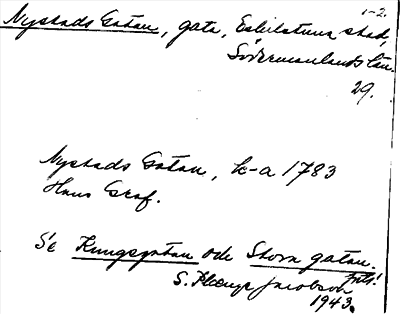 1-2.
Nystads Gatan, gata, Eskilstuna stad,
Södermanlands län.
29.
Nystads Gatan, k-a 1783
Hans Graf.
Se Kungsgatan och Stora gatan.
forts!
S. Jacobson
1943.